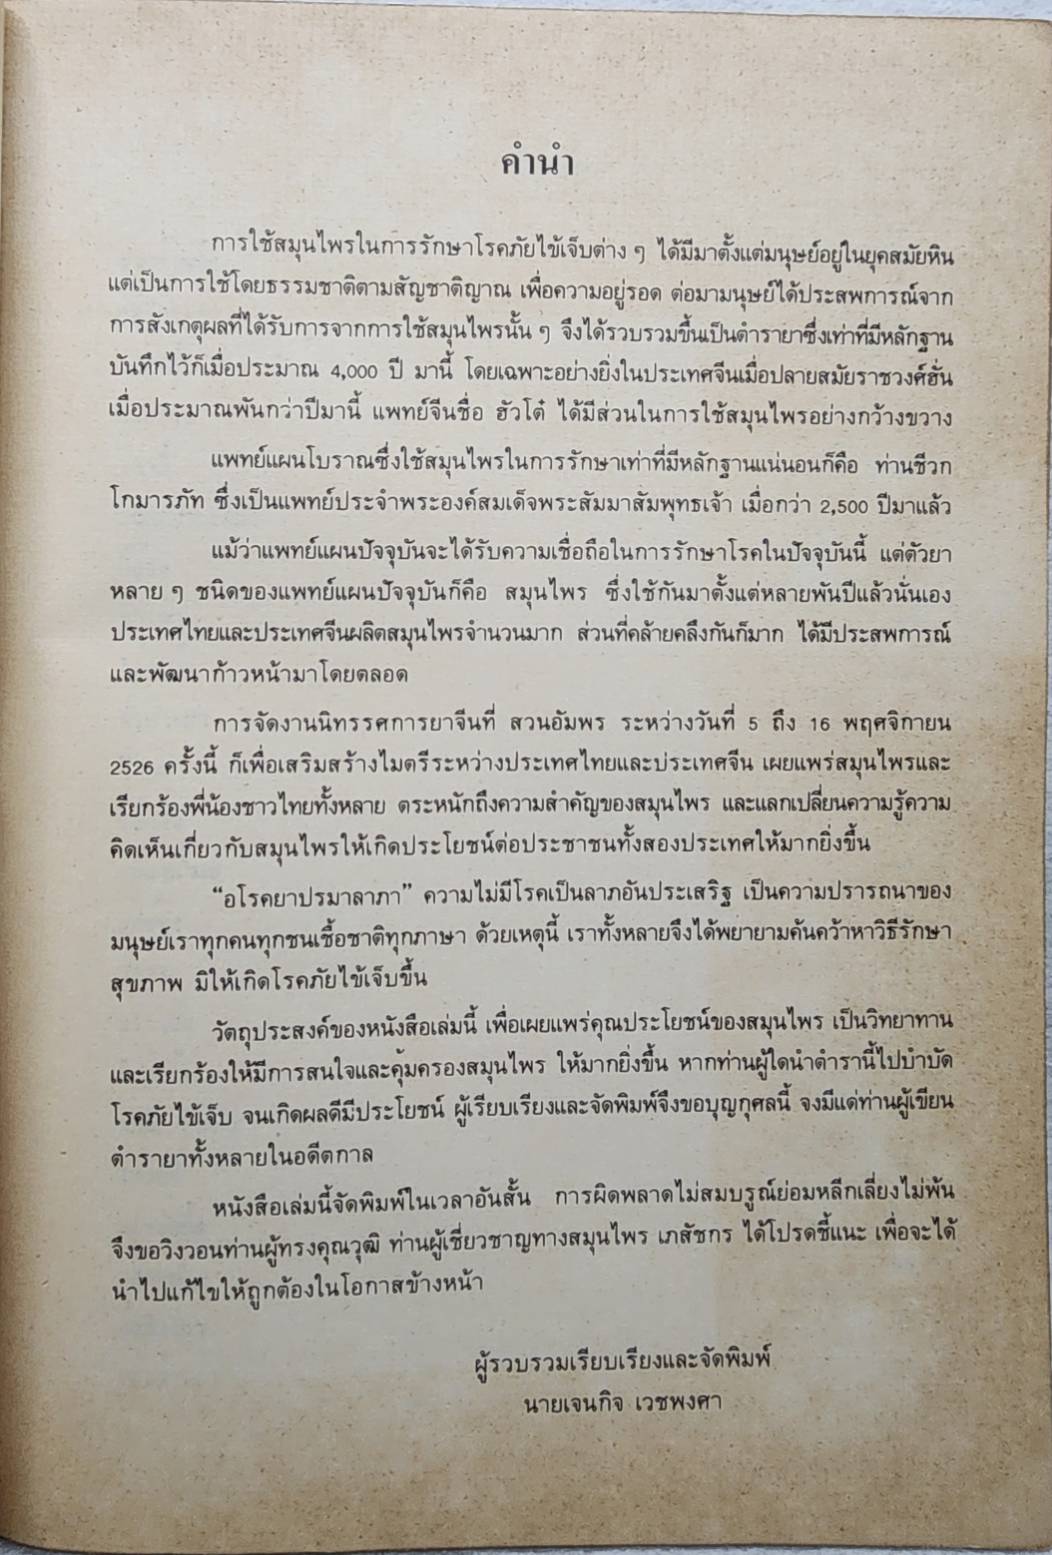 คำนำ
การใช้สมุนไพรในการรักษาโรคภัยไข้เจ็บต่าง ๆ ได้มีมาตั้งแต่มนุษย์อยู่ในยุคสมัยหิน
แต่เป็นการใช้โดยธรรมชาติตามสัญชาติญาณ เพื่อความอยู่รอด ต่อมามนุษย์ได้ประสพการณ์จาก
การสังเกตุผลที่ได้รับการจากการใช้สมุนไพรนั้น ๆ จึงได้รวบรวมขึ้นเป็นตำรายาซึ่งเท่าที่มีหลักฐาน
บันทึกไว้ก็เมื่อประมาณ 4,000 ปี มานี้ โดยเฉพาะอย่างยิ่งในประเทศจีนเมื่อปลายสมัยราชวงศ์ฮั่น
เมื่อประมาณพันกว่าปีมานี้ แพทย์จีนชื่อ ฮัวโต๋ ได้มีส่วนในการใช้สมุนไพรอย่างกว้างขวาง
แพทย์แผนโบราณซึ่งใช้สมุนไพรในการรักษาเท่าที่มีหลักฐานแน่นอนก็คือ ท่านชีวก
โกมารภัท ซึ่งเป็นแพทย์ประจำพระองค์สมเด็จพระสัมมาสัมพุทธเจ้า เมื่อกว่า 2,500 ปีมาแล้ว
แม้ว่าแพทย์แผนปัจจุบันจะได้รับความเชื่อถือในการรักษาโรคในปัจจุบันนี้ แต่ตัวยา
หลาย ๆ ชนิดของแพทย์แผนปัจจุบันก็คือ สมุนไพร ซึ่งใช้กันมาตั้งแต่หลายพันปีแล้วนั่นเอง
ประเทศไทยและประเทศจีนผลิตสมุนไพรจำนวนมาก ส่วนที่คล้ายคลึงกันก็มาก ได้มีประสพการณ์
และพัฒนาก้าวหน้ามาโดยตลอด
การจัดงานนิทรรศการยาจีนที่ สวนอัมพร ระหว่างวันที่ 5 ถึง 16 พฤศจิกายน
2526 ครั้งนี้ ก็เพื่อเสริมสร้างไมตรีระหว่างประเทศไทยและประเทศจีน เผยแพร่สมุนไพรและ
เรียกร้องพี่น้องชาวไทยทั้งหลาย ตระหนักถึงความสำคัญของสมุนไพร และแลกเปลี่ยนความรู้ความ
คิดเห็นเกี่ยวกับสมุนไพรให้เกิดประโยชน์ต่อประชาชนทั้งสองประเทศให้มากยิ่งขึ้น
“อโรคยาปรมาลาภา” ความไม่มีโรคเป็นลาภอันประเสริฐ เป็นความปรารถนาของ
มนุษย์เราทุกคนทุกชนเชื้อชาติทุกภาษา ด้วยเหตุนี้ เราทั้งหลายจึงได้พยายามค้นคว้าหาวิธีรักษา
สุขภาพ มิให้เกิดโรคภัยไข้เจ็บขึ้น
วัตถุประสงค์ของหนังสือเล่มนี้ เพื่อเผยแพร่คุณประโยชน์ของสมุนไพร เป็นวิทยาทาน
และเรียกร้องให้มีการสนใจและคุ้มครองสมุนไพร ให้มากยิ่งขึ้น หากท่านผู้ใดนำตำรานี้ไปบำบัด
โรคภัยไข้เจ็บ จนเกิดผลดีมีประโยชน์ ผู้เรียบเรียงและจัดพิมพ์จึงขอบุญกุศลนี้ จงมีแด่ท่านผู้เขียน
ตำรายาทั้งหลายในอดีตกาล
หนังสือเล่มนี้จัดพิมพ์ในเวลาอันสั้น การผิดพลาดไม่สมบรูณ์ย่อมหลีกเลี่ยงไม่พ้น
จึงขอวิงวอนท่านผู้ทรงคุณวุฒิ ท่านผู้เชี่ยวชาญทางสมุนไพร เภสัชกร ได้โปรดชี้แนะ เพื่อจะได้
นำไปแก้ไขให้ถูกต้องในโอกาสข้างหน้า
ผู้รวบรวมเรียบเรียงและจัดพิมพ์
นายเจนกิจ เวชพงศา